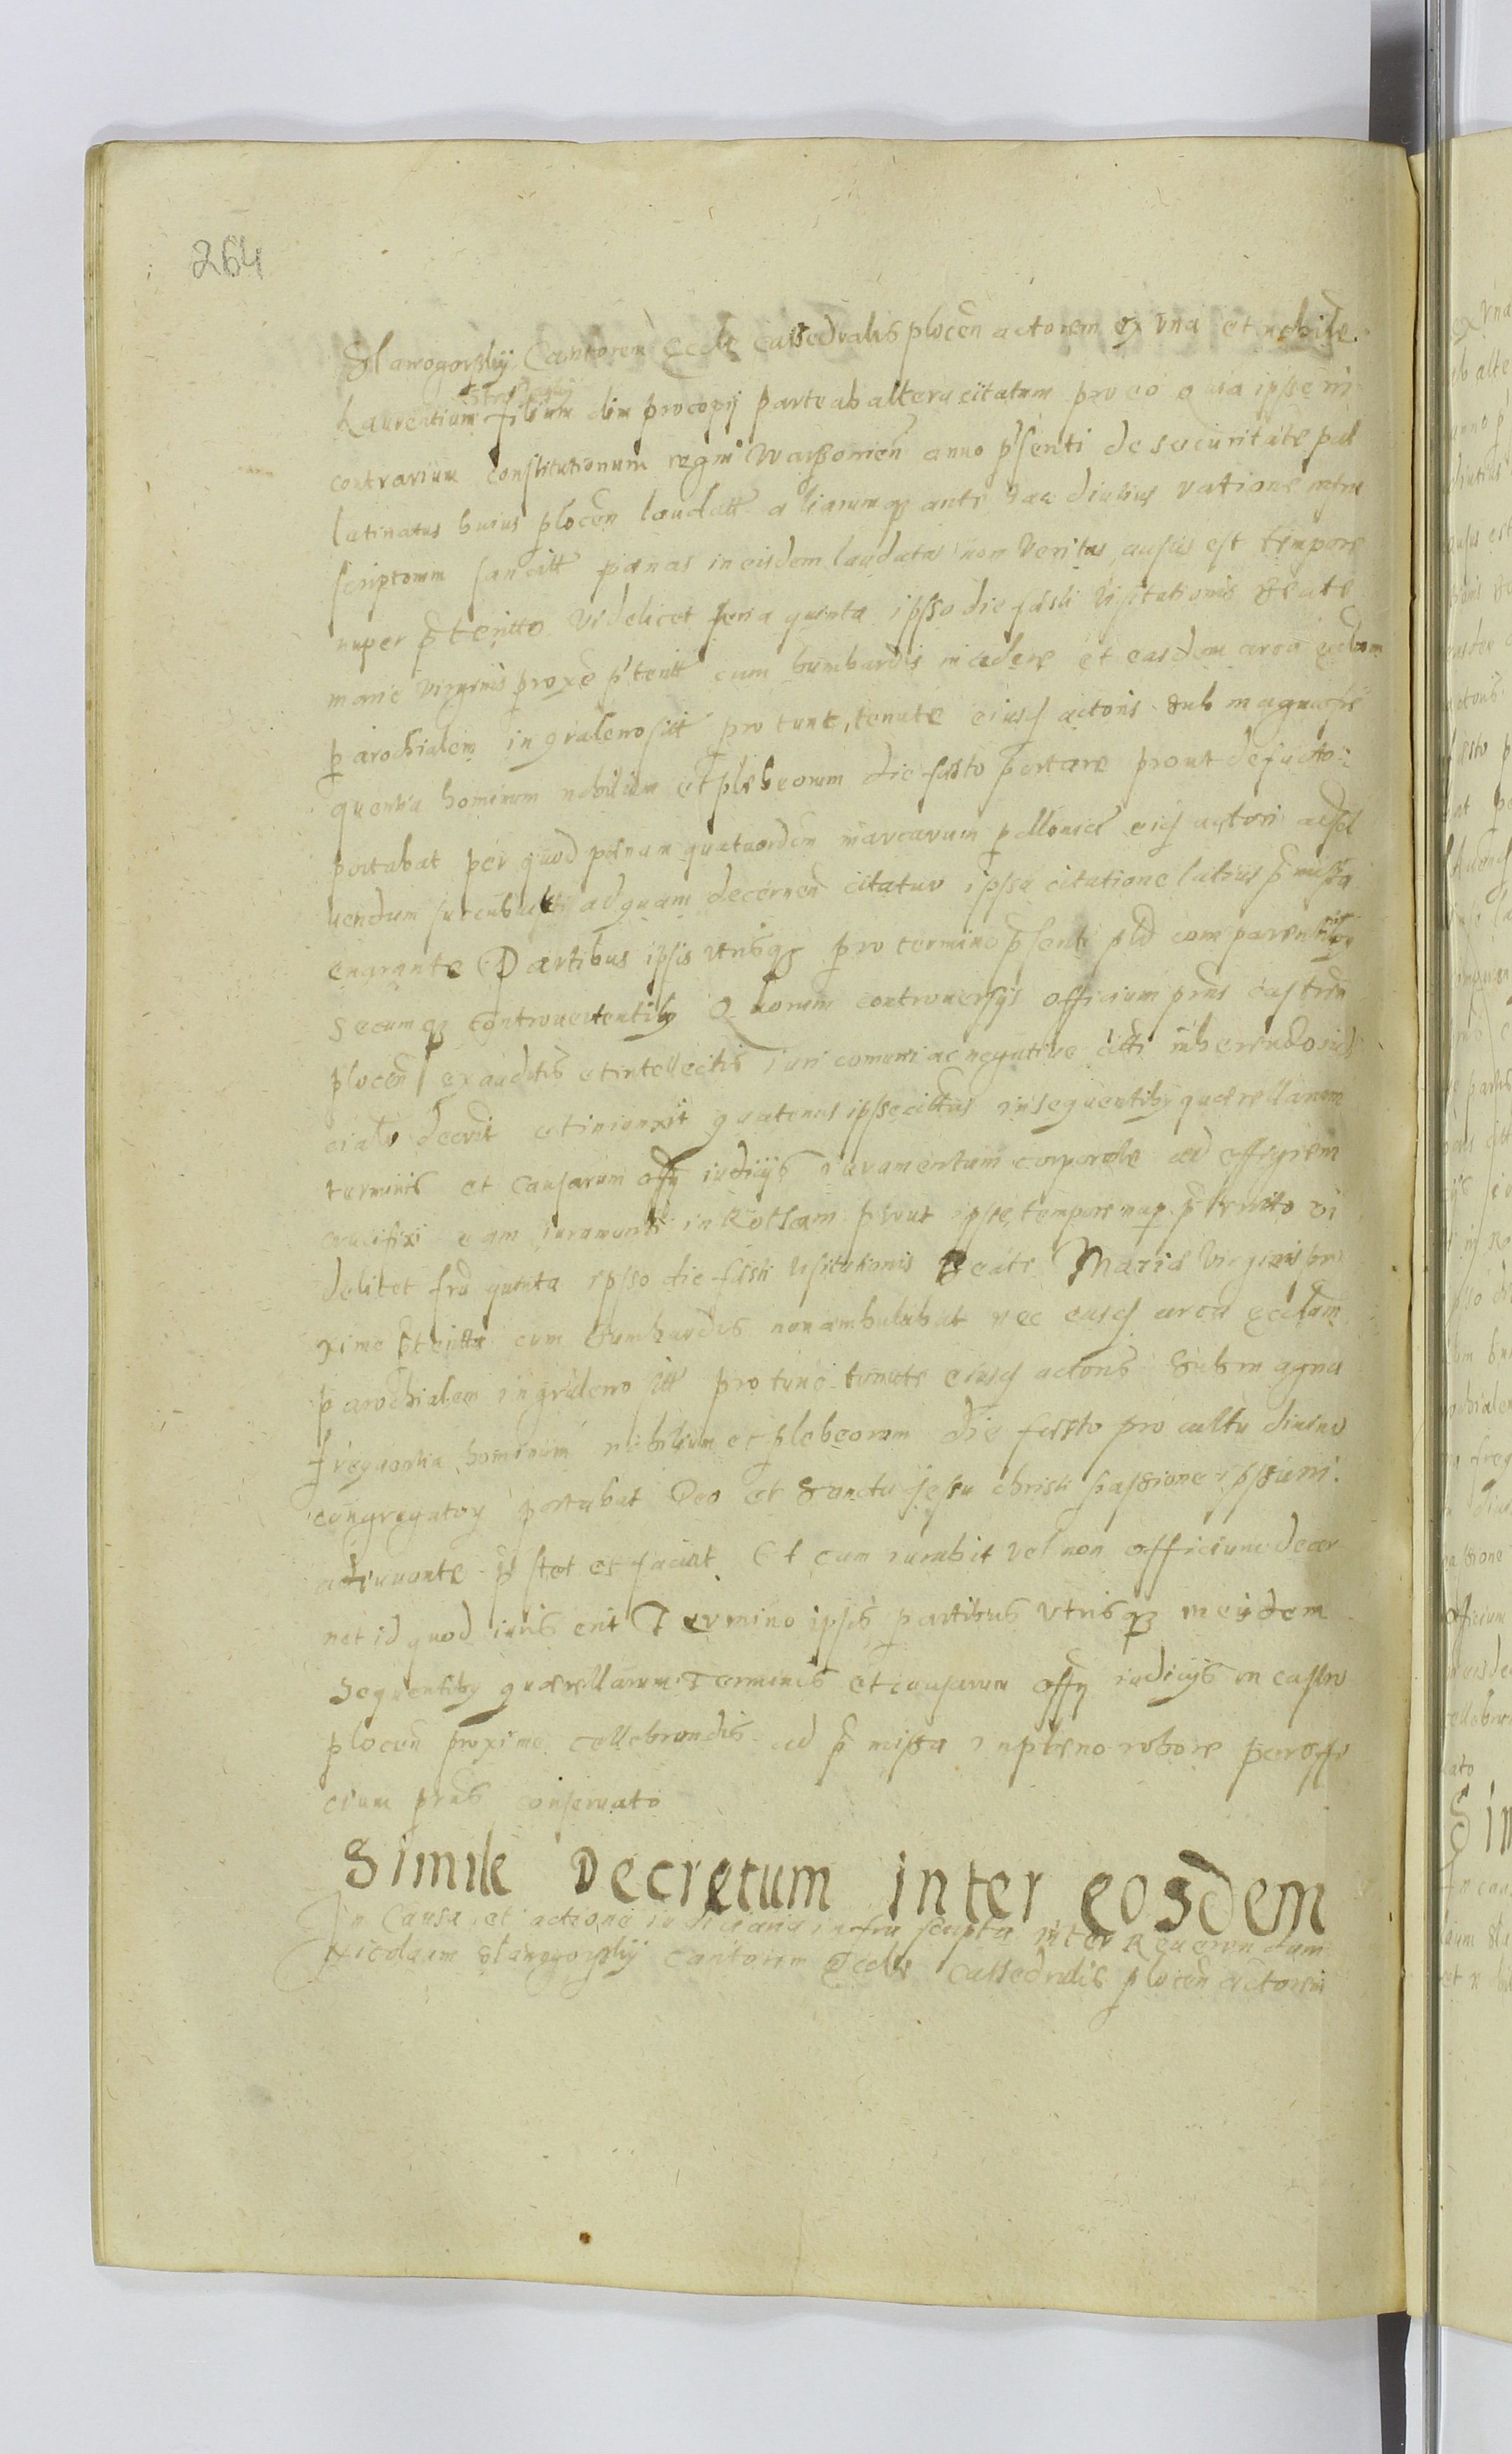 264
Slawogorskij Cantorem Eccle catedralis plocen actorem ex vna et nobile
Laurentium filium olim procopij parte ab altera citatum pro eo quia ipse in
contrarium constitutionum regni warssovien anno pñsenti de securitate pal
latinatus huius plocen laudatt aliarumqz ante hac diutius ratione
scriptorum sancitt pænas in eisdem laudatas non veritus ausus est tempore
nuper p̃teritto videlicet feria quinta ipso die festi visitationis Beate
marie virginis proxe p̃teritt cum bumbardis incedere et easdem circa ecclam
parochialem in graleuo sitt pro tunc tenute eiusd actoris sub magna fre
quentia hominum nobilium et plebeorum die festo portare prout de facto
portabat per quod pænam quatuordcim marcarum pollonical eid actori ad sol
uendum succubuit ad quam decernend citatur ipsa citatione latius p̃missa
enarrante Partibus ipsis vtrisqz pro termino p̃senti pld comparentibus
Secumqz controuertentibz Quorum controuersijs officium prns castren
plocen exauditis et intellectis iuri comuni ac negative citti inherendo iudi
cialr decrevit et iniunxit quatenus ipse cittus in sequentibz quærellarum
terminis et causarum offij iudicijs iuramentum corporale ad effigiem
crucifixi eam iuramenti in Rottam prout ipse tempore nup p̃teritto vi
delicet fria quinta ipso die festi visitationis Beate Maria Virginis pro
xime p̃teritte cum bumbardis non ambulabat nec eased circa ecclam
parochialem in graleuo sitt pro tunc tenute eiusd actoris sub magna
frequentia hominum nobilium et plebeorum die festo pro cultu diuino
congregator portabat Deo et Sancta Jesu christi passione ipsum
adiuuante p̃stet et faciat Et cum iurabit vel non officium decer
net id quod iuris erit Termino ipsis partibus vtrisqz in eisdem
Sequentibz quærellarum Terminis et causarum offij iudicijs in castro
plocen proxime cellebrandis ad p̃missa in pleno robore per offi
cium prns conseruato
Simile Decretum inter eosdem
In Causa et actione iudiciaria infra scripta inter Reuerendum
Nicolaum Slawogorskij cantorem Eccle catedralis plocen actorem